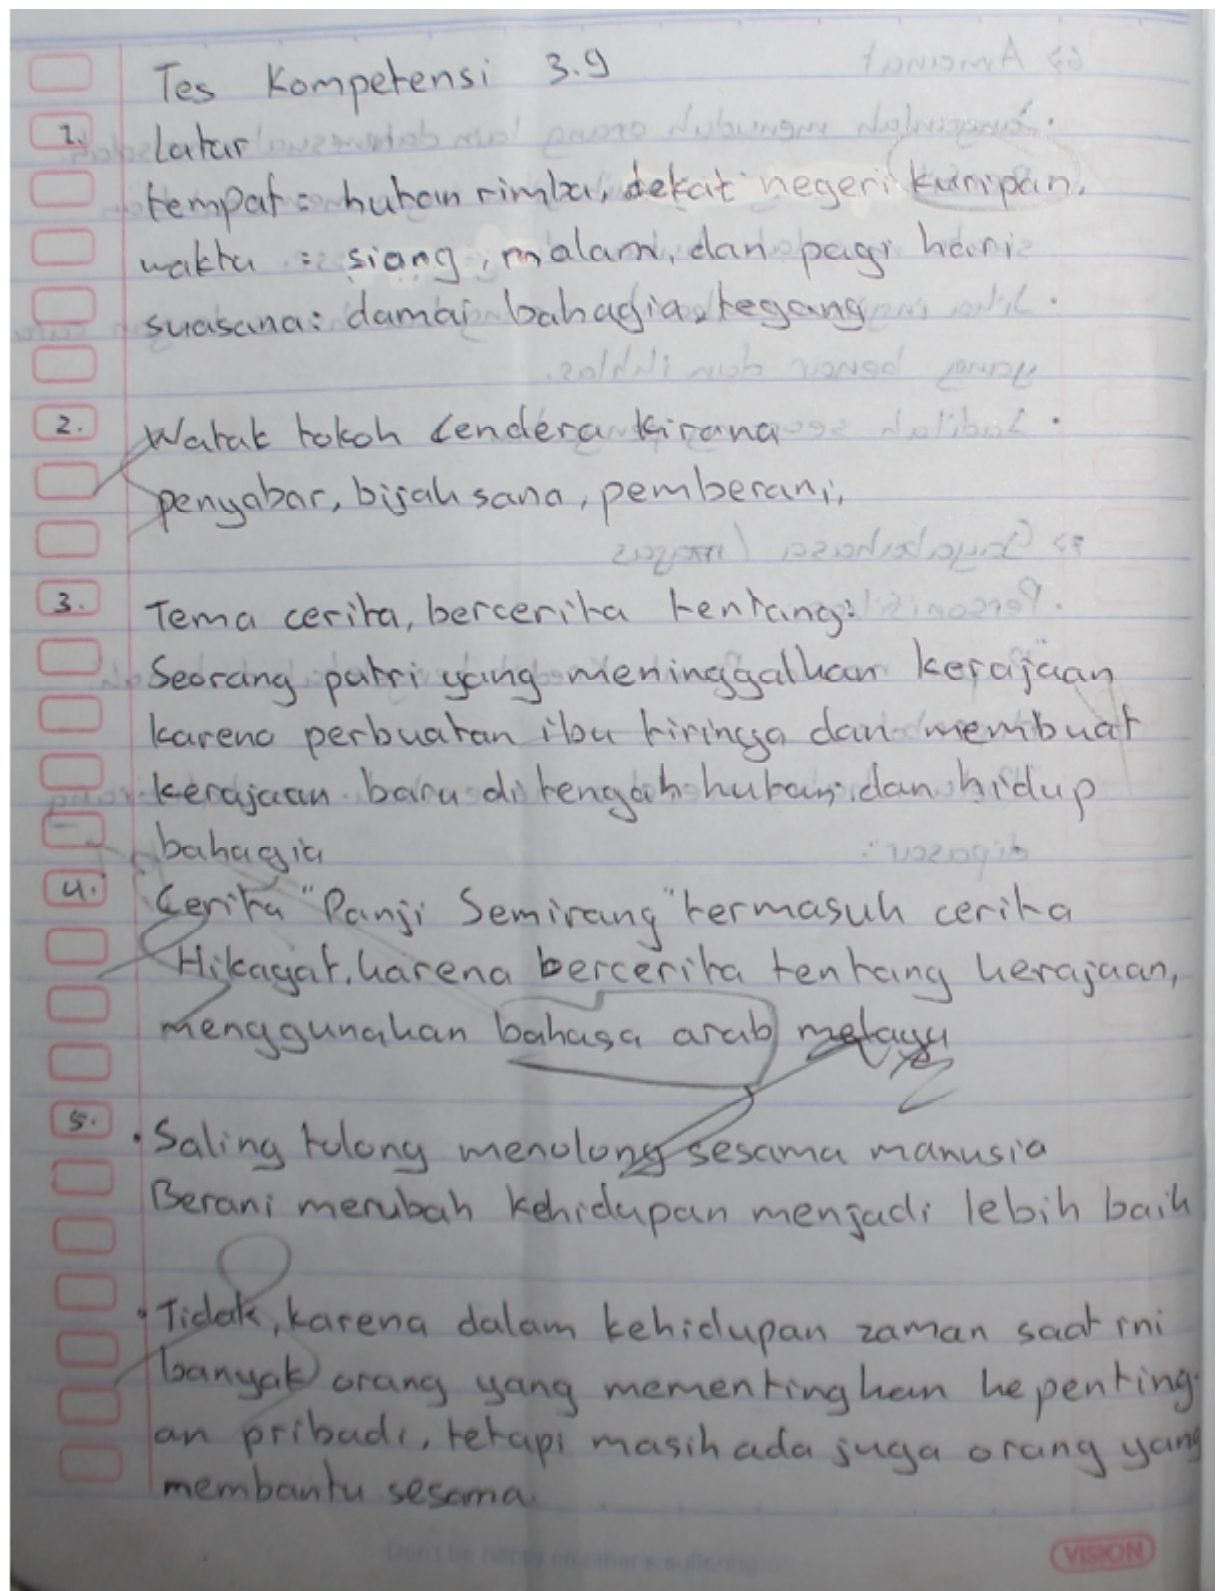 Tes Kompetensi 3.9
1. Latar
tempat : hutan rimba, dekat negeri kuripan.
waktu : siang, malam, dan pagi hari
suasana : damai bahagia, tegang
2. Watak tokoh Cendera Kirana
penyabar, bijaksana, pemberani,
3. Tema cerita, bercerita tentang:
Seorang putri yang meninggalkan kerajaan
karena perbuatan ibu tirinya dan membuat
kerajaan baru di tengah hutan, dan hidup
bahagia
4. Cerita "Panji Semirang" termasuk cerita
Hikayat, karena bercerita tentang kerajaan,
menggunakan bahasa arab melayu
5. • Saling tolong menolong sesama manusia
Berani merubah kehidupan menjadi lebih baik
• Tidak, karena dalam kehidupan zaman saat ini
banyak orang yang mementingkan kepenting-
an pribadi, tetapi masih ada juga orang yang
membantu sesama.
VISION